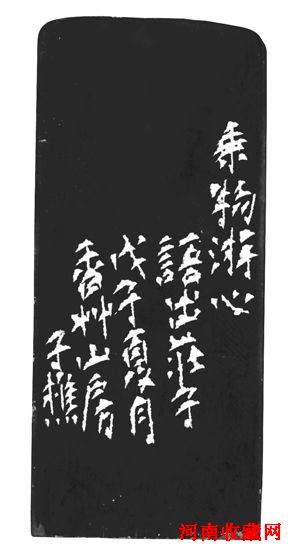 乘物游心
語出莊子
戊子夏月
香艸山房
子樵
河南收藏网